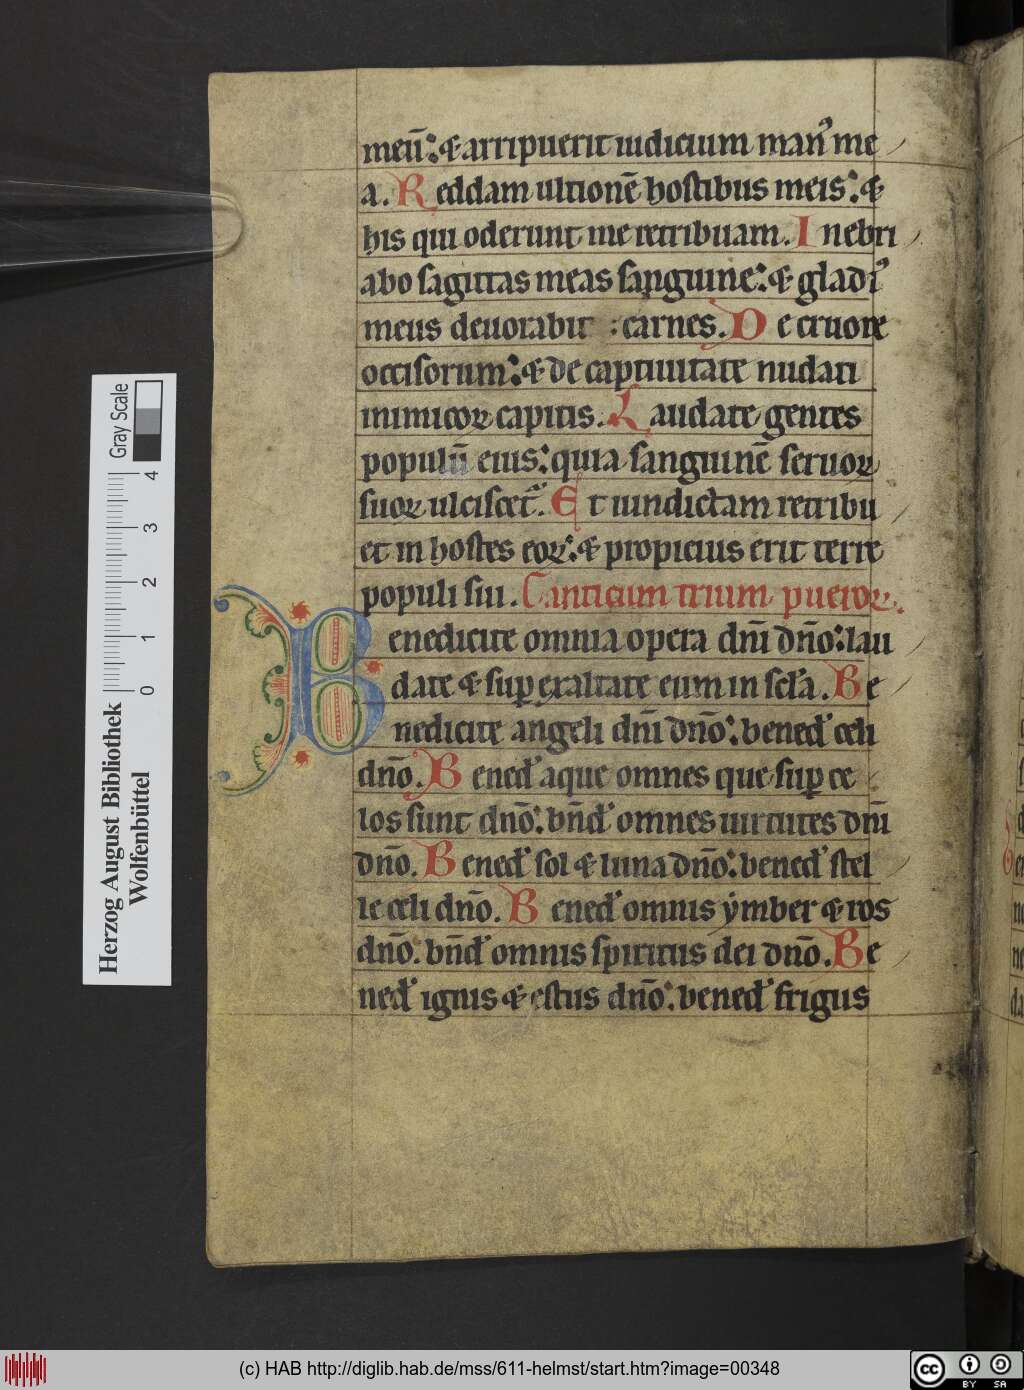 meū: ⁊ arripuerit iudicium man᷒ me
a. Reddam ultionē hostibus meis: ⁊
his qui oderunt me retribuam. Inebri
abo sagittas meas sanguine: ⁊ gladi᷒
meus deuorabit : carnes. De cruore
occisorum: ⁊ de captiuitate nudati
inimicoꝝ capitis. Laudate gentes
populū eius: quia sanguinē seruoꝝ
suoꝝ ulciscet᷑. Et uindictam retribu
et in hostes eoꝝ: ⁊ propicius erit terre
populi sui. Canticum trium pueroꝝ.
Benedicite omnia opera dn̄i dn̄o: lau
date ⁊ suꝑexaltate eum in scl̄a. Be
nedicite angeli dn̄i dn̄o: bened̕ celi
dn̄o. Bened̕ aque omnes que suꝑ ce
los sunt dn̄o: bn̄d̕ omnes uirtutes dn̄i
dn̄o. Bened̕ sol ⁊ luna dn̄o: bened̕ stel
le celi dn̄o. Bened̕ omnis ẏmber ⁊ ros
dn̄o: bn̄d̕ omnis spiritus dei dn̄o. Be
ned̕ ignis ⁊ estus dn̄o: bened̕ frigus
Gray Scale
0 1 2 3 4
Herzog August Bibliothek
Wolfenbüttel
(c) HAB http://diglib.hab.de/mss/611-helmst/start.htm?image=00348
cc BY SA